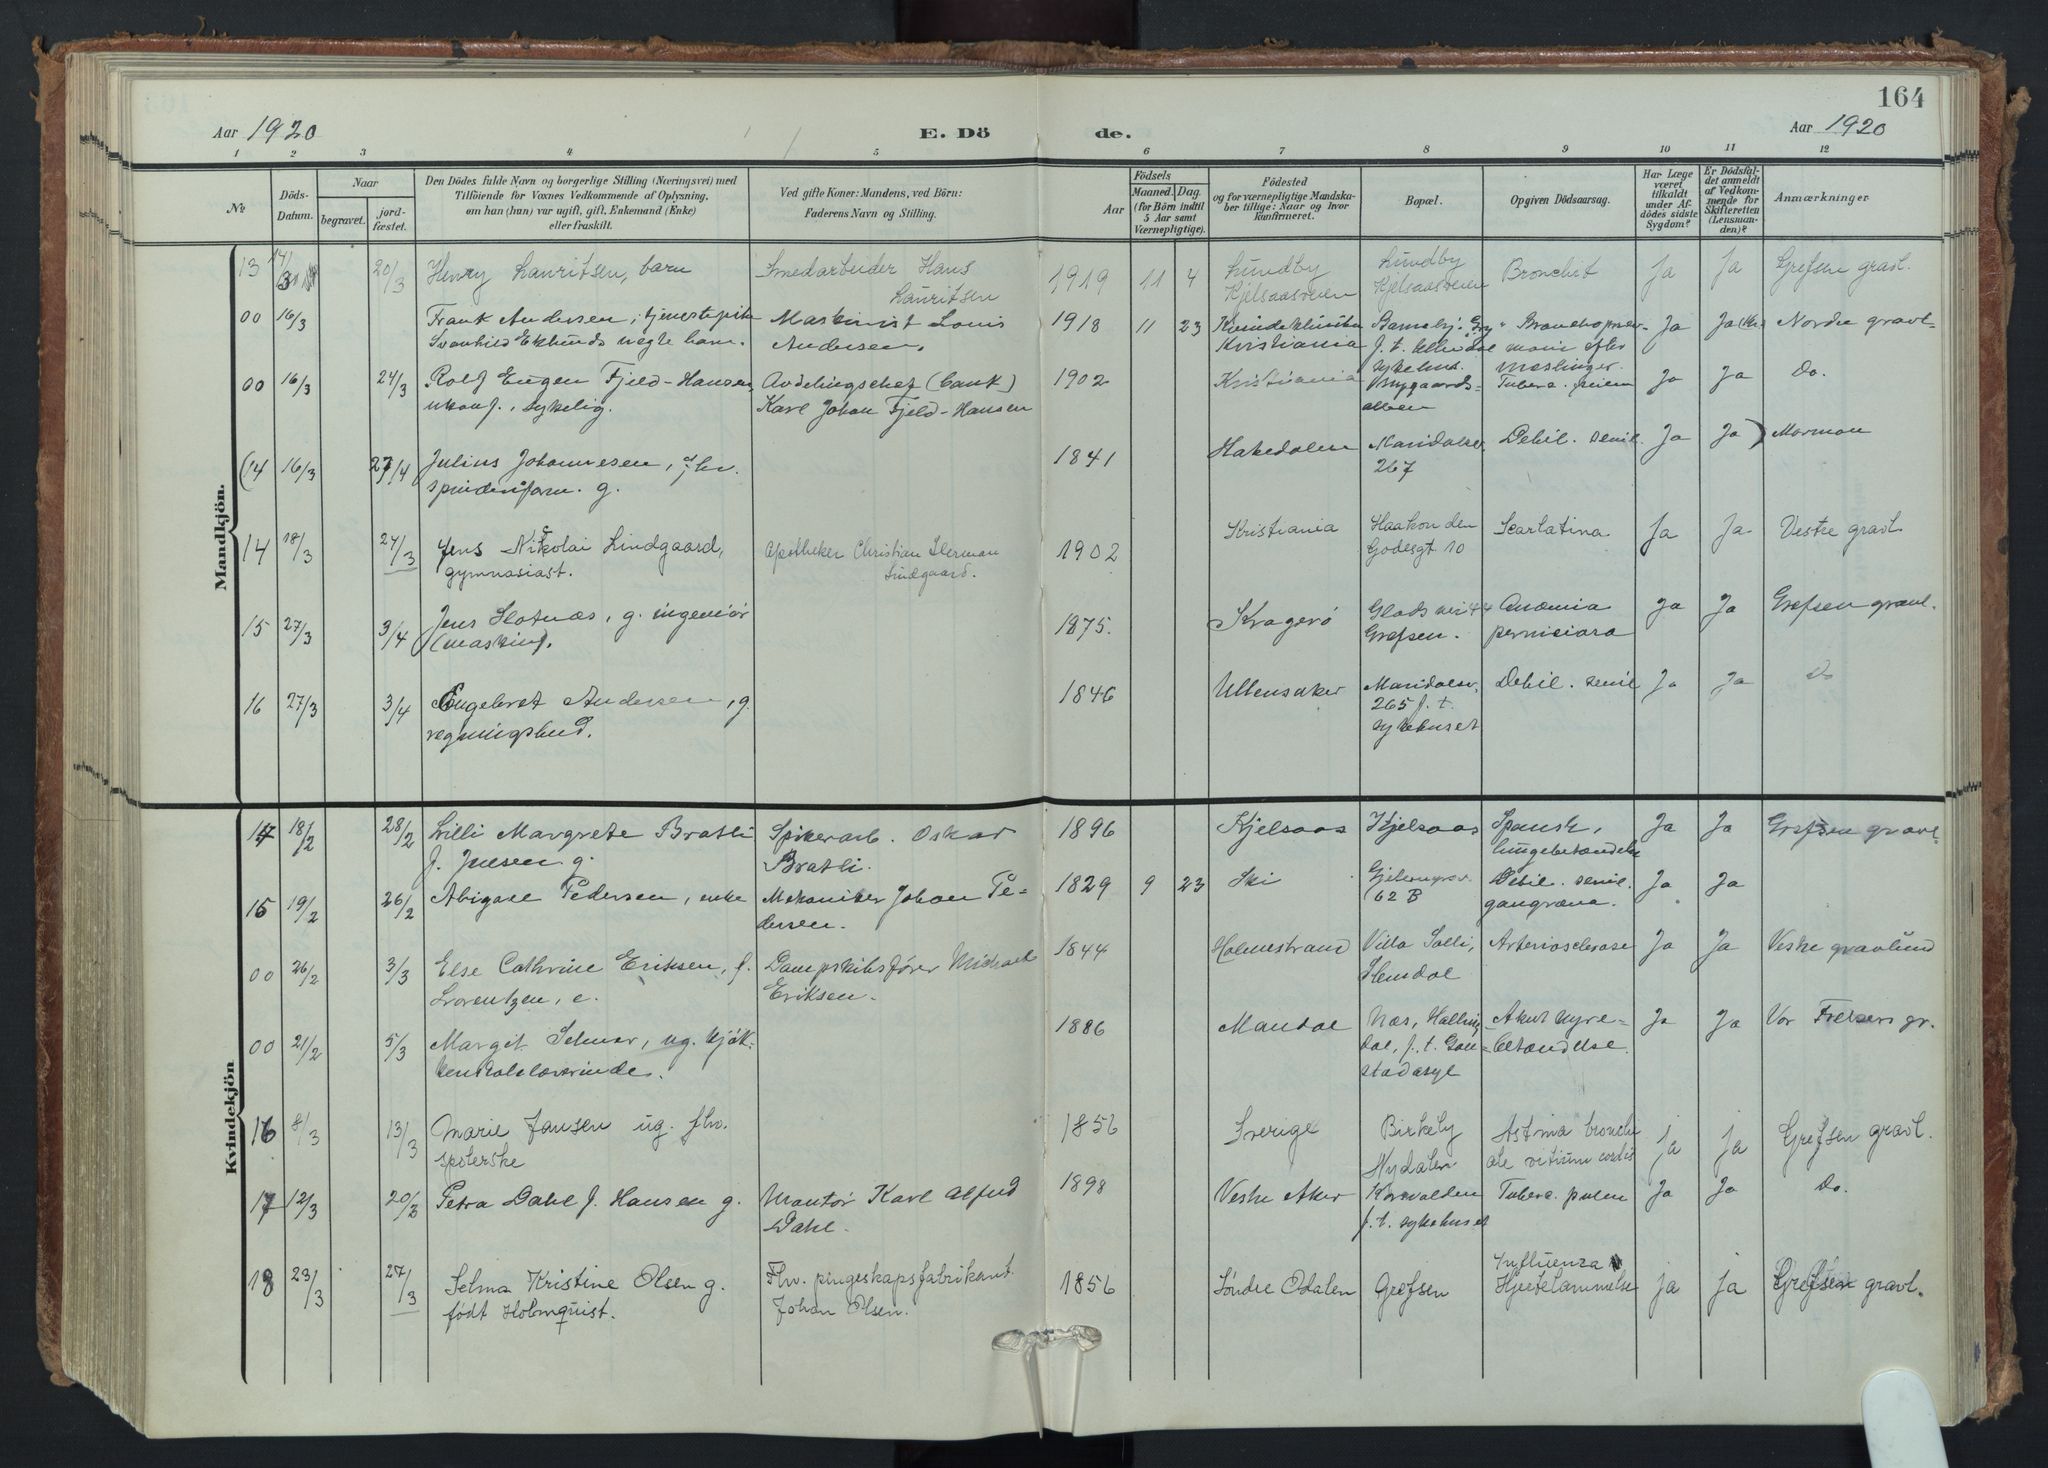 164
Aar 1920
E. Dö
de.
Aar 1920
1 2 3 4 5 6 7 8 9 10 11 12
№
Döds-
Datum.
Naar
begravet.
jord-
fæstet.
Den Dödes fulde Navn og borgerlige Stilling (Næringsvei) med
Tilföiende for Voxnes Vedkommende af Oplysning,
om han (hun) var ugift, gift, Enkemand (Enke)
eller fraskilt.
Ved gifte Koner: Mandens, ved Börn:
Faderens Navn og Stilling.
Födsels
Aar
Maaned. Dag.
(for Börn indtil
5 Aar samt
Værnepligtige).
Födested
og for værnepligtige Mandska-
ber tillige: Naar og hvor
konfirmeret.
Bopæl.
Opgiven Dödsaarsag.
Har Læge
været
tilkaldt
under Af-
dödes sidste
Sygdom?
Er Dödsfal-
det anmeldt
af Vedkom-
mende for
Skifteretten
(Lensman-
den)?
Anmærkninger
Mandkjön.
13 20/3 Henry Lauritsen, barn Smedarbeider Hans 1919 11 4 Lundby Lundby Bronchit Ja Ja Grefsen gravl.
Lauritsen Kjelsaasveien Kjelsaasveien
00 16/3 Frank Andersen, tjenestepike Maskinist Louis 1918 11 23 Kvindeklinikken Ja Ja Nordre gravl.
Svanhild Eklunds uegte barn. Andersen. Kristiania mæslinger.
00 16/3 24/3 Rolf Eugen Fjeld-Hansen, Avdelingschef (bank) 1902 Kristiania Ja Ja Do.
ukonf., sykelig. Karl Johan Fjeld-Hansen
(14 16/3 27/4 Julius Johannesen, fhv. 1841 Hakedalen Maridalsv. Debil. senil. Ja Ja) Mormon
g. 267
14 18/3 24/3 Jens Nikolai Lindgaard, Apotheker Christian Herman 1902 Kristiania Haakon den Scarlatina Ja Ja Vestre gravl.
gymnasiast. Lindgaard. Godesgt. 10
15 27/3 3/4 Jens Slotnæs, g. ingeniør 1875. Kragerø Glads vei 44 Anæmia Ja Ja Grefsen gravl.
(maskin). Grefsen. perniciosa
16 27/3 3/4 Engebret Andersen, g. 1846 Ullensaker Maridalsv. Debil. senil Ja Ja Do
regningsbud. 265 f. t.
sykehuset
Kvindekjön
14 18/2 28/2 Lilli Margrete Bratli Spikerarb. Oskar 1896 Kjelsaas Kjelsaas Spansk, Ja Ja Grefsen gravl.
f. Juesen g. Bratli. lungebetændelse
15 19/2 26/2 Abigael Pedersen, enke Mekaniker Johan Pe- 1829 9 23 Ski 62 B Debil. senil. Ja Ja
dersen. gangræna.
00 26/2 3/3 Else Cathrine Eriksen, f. Dampskibsfører Michael 1844 Holmestrand Villa Solli, Arteriosclerose Ja Ja Vestre gravlund
Lorentzen, e. Eriksen. Slemdal
00 21/2 5/3 Margit Selmer, ug. kjøk- 1886 Mandal Næs, Halling- Akut nyre- Ja Ja Vor Frelsers gr.
kenskolelærerinde. dal, f. t. Gau- betændelse.
stadasyl
16 8/3 13/3 Marie Jansen ug. fhv. 1856 Sverige Birkely Astma bronchi- ja ja Grefsen gravl.
spolerske Nydalen ale vitium cordis
17 12/3 20/3 Petra Dahl f. Hansen g. Montør Karl Alfred 1898 Vestre Aker Korsvolden Tuberc. pulm Ja Ja Do.
Dahl. f. t. sykehuset
18 23/3 27/3 Selma Kristine Olsen g. Fhv. pengeskapsfabrikant 1856 Søndre Odalen Grefsen Influenza ja ja Grefsen gravl.
født Holmquist. Johan Olsen. Hjertelammelse